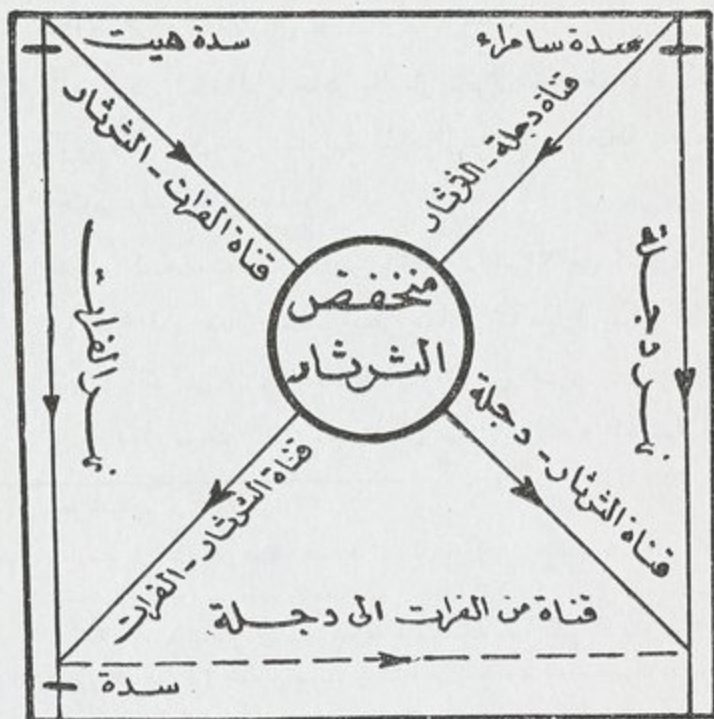 سدة سامراء
سدة هيت
قناة دجلة - الثرثار
قناة الفرات - الثرثار
نهر دجلة
نهر الفرات
منخفض
الثرثار
قناة الثرثار - دجلة
قناة الثرثار - الفرات
قناة من الفرات الى دجلة
سدة